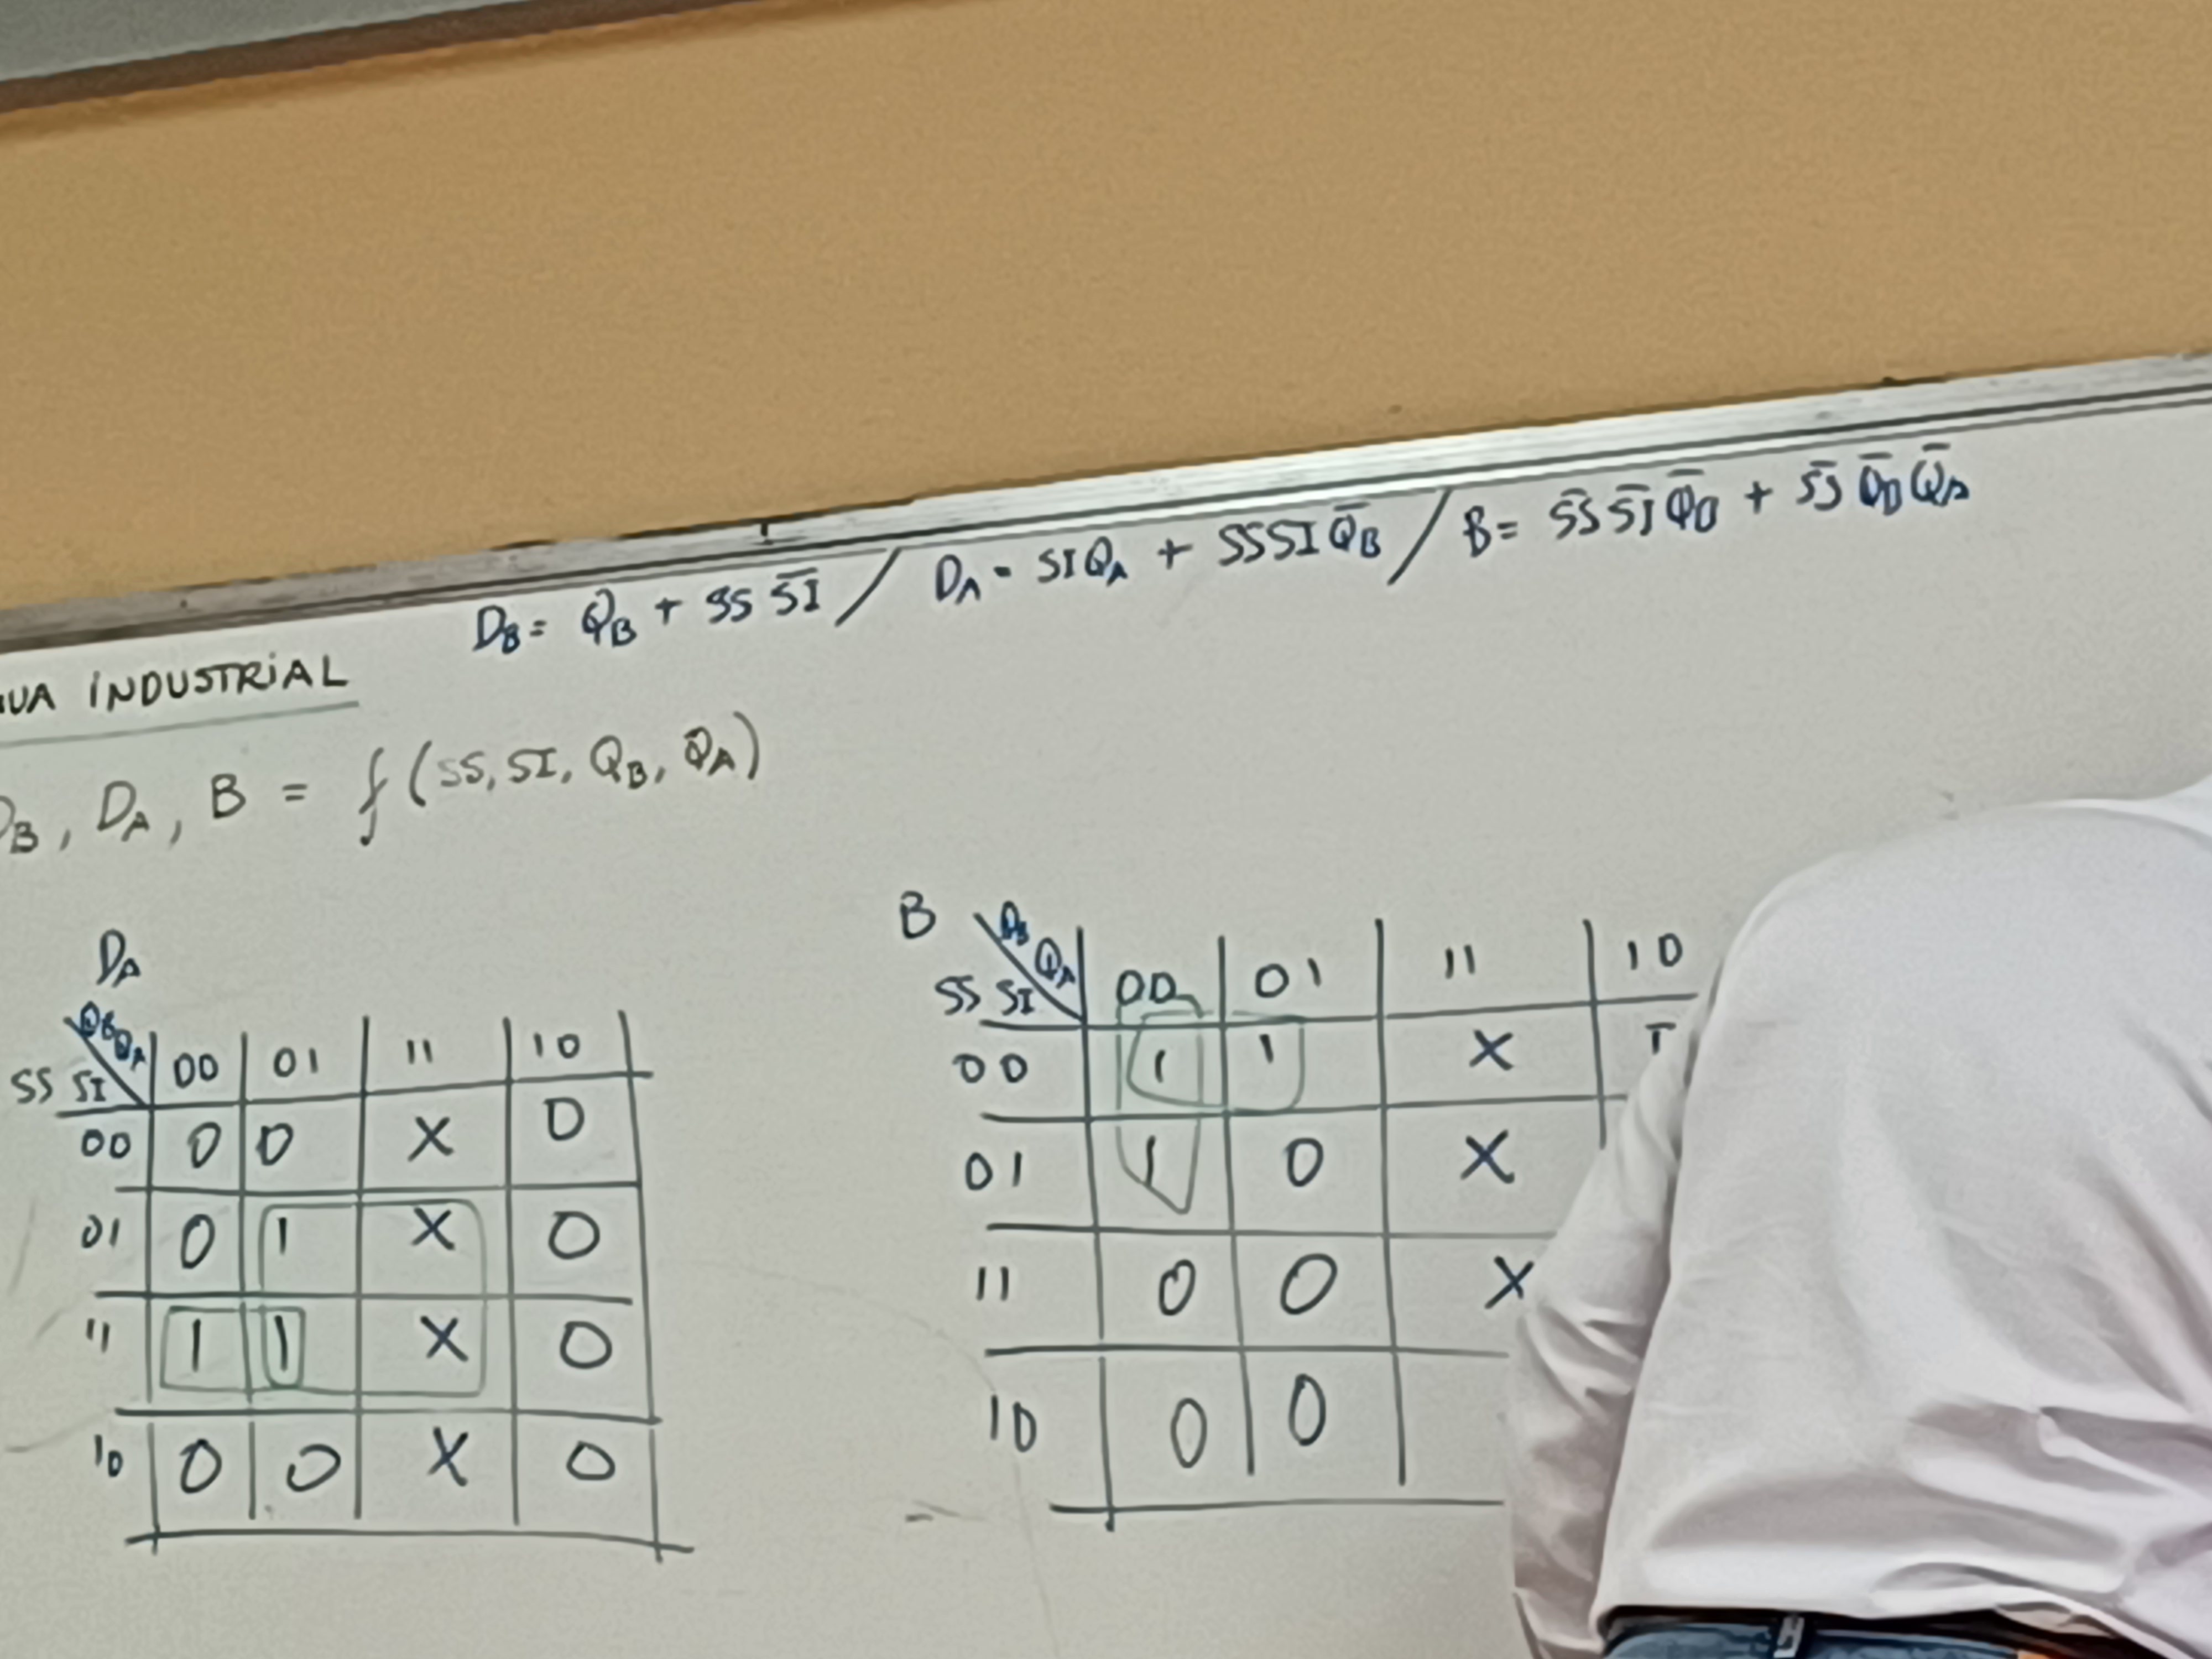 D_B = Q_B + SS S̅I̅ / D_A = SI Q_A + SS SI Q̅_B / B = S̅S̅ S̅I̅ Q̅_B + S̅S̅ Q̅_B Q̅_A
INDUSTRIAL
D_B, D_A, B = f(SS, SI, Q_B, Q_A)
D_A
Q_B Q_A
SS SI 00 01 11 10
00 0 0 X 0
01 0 1 X 0
11 1 1 X 0
10 0 0 X 0
B Q_B Q_A
SS SI 00 01 11 10
00 1 1 X
01 1 0 X
11 0 0 X
10 0 0